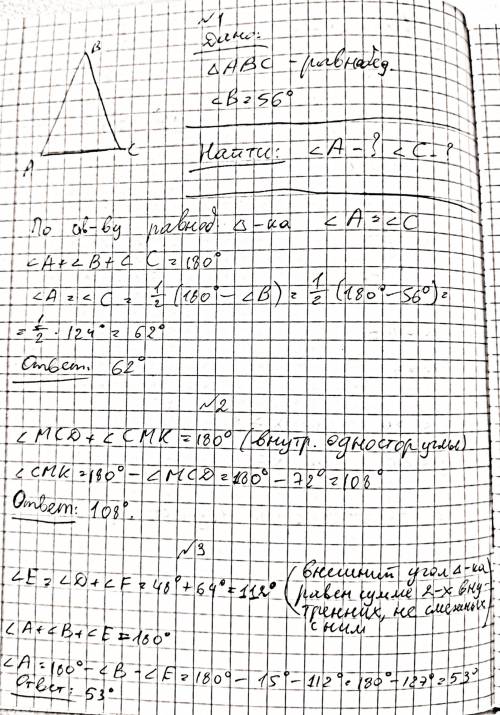 №1
Дано:
△ABC - равнобед.
∠B=56°
Найти: ∠A-? ∠C-?
B
A
C
По св-ву равнод △-ка ∠A=∠C
∠A+∠B+∠C=180°
∠A=∠C= 1/2 (180°-∠B)= 1/2 (180°-56°)=
= 1/2 · 124°= 62°
Ответ. 62°
№2
∠MCD+∠CMK=180° (внутр. одностор углы)
∠CMK=180°-∠MCD=180°-72°=108°
Ответ: 108°.
№3
∠E=∠D+∠F=48°+64°=112° (внешнит угол △-ка
равен сумме 2-х вну-
тренних, не смежных
с ним
∠A+∠B+∠E=180°
∠A=180°-∠B-∠E=180°-15°-112°=180°-127°=53°
Ответ: 53°